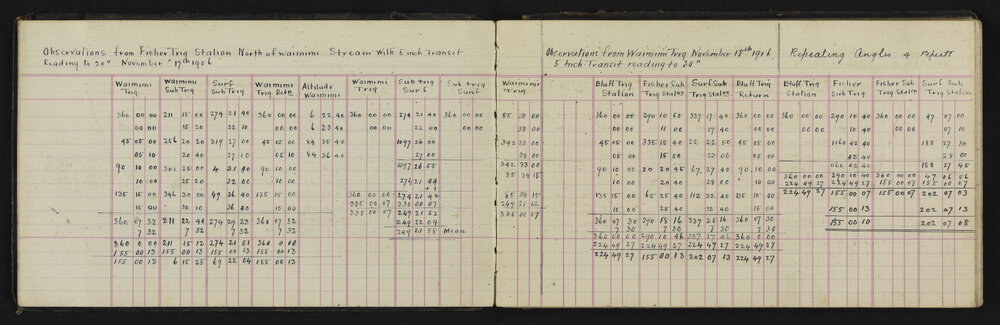 Observations from Fisher Trig Station North of Waimimi Stream With 5 inch Transit
Reading to 20" November 17th 1906
Waimimi Trig. Waimimi Sub Trig Surf Sub Trig Waimimi Trig Retn Altitude Waimimi Waimimi Trig Sub trig Surf Sub trig Surf
360 00 00 211 15 00 274 21 40 360 00 00 6 22 40 360 00 00 274 21 40 360 00 00
00 00 15 20 22 10 00 00 6 23 40 00 00 22 00 00 00
45 05 00 256 20 20 319 27 00 45 05 00 84 35 40 1097 26 50
05 10 20 40 27 10 05 10 84 36 40 27 00
90 10 00 301 25 00 4 31 40 90 10 00 1097 26 55
10 00 25 20 32 00 10 00 274 21 44
135 15 00 346 30 00 49 36 40 135 15 00 360 00 00 274 21 44
15 00 30 10 36 40 15 00 335 00 07 335 00 07
360 07 32 211 22 44 274 29 23 360 07 32 335 00 07 249 21 52
7 32 7 32 7 32 7 32 249 22 04
360 0 00 211 15 12 274 21 51 360 0 00 249 21 58 Mean
155 00 13 155 00 13 155 00 13 155 00 13
155 00 13 6 15 25 69 22 04 155 00 13
Observations from Waimimi Trig November 18th 1906
5 Inch Transit reading to 20"
Repeating Angles 4 repeats
Waimimi Trig Bluff Trig Station Fisher Sub Trig Station Surf Sub Trig Station Bluff Trig Return Bluff Trig Station Fisher Sub Trig Fisher Sub Trig Station Surf Sub Trig Station
85 38 00 360 00 00 290 10 50 337 17 40 360 00 00 360 00 00 290 10 40 360 00 00 47 07 00
38 00 00 00 11 00 17 40 00 00 00 00 10 40 00 00 07 10
342 33 00 45 05 00 335 15 40 22 22 50 45 05 00 1160 42 40 188 27 30
33 00 05 00 15 50 23 00 05 00 42 40 28 00
342 33 00 90 10 00 20 20 45 67 27 40 90 10 00 1160 42 40 188 27 45
85 38 15 10 00 20 40 28 00 10 00 360 00 00 290 10 40 360 00 00 47 06 56
224 49 27 224 49 27 155 00 07 155 00 07
85 38 15 135 15 00 65 25 40 112 32 40 135 15 00 224 49 27 155 00 13 155 00 07 202 07 03
249 21 52 15 00 25 40 32 40 15 00 155 00 13 202 07 13
335 00 07 360 07 30 290 18 16 337 25 16 360 07 30 155 00 10 202 07 08
7 30 7 30 7 30 7 30
360 00 00 290 10 46 337 17 46 360 0 00
224 49 27 224 49 27 224 49 27 224 49 27
224 49 27 155 00 13 202 07 13 224 49 27